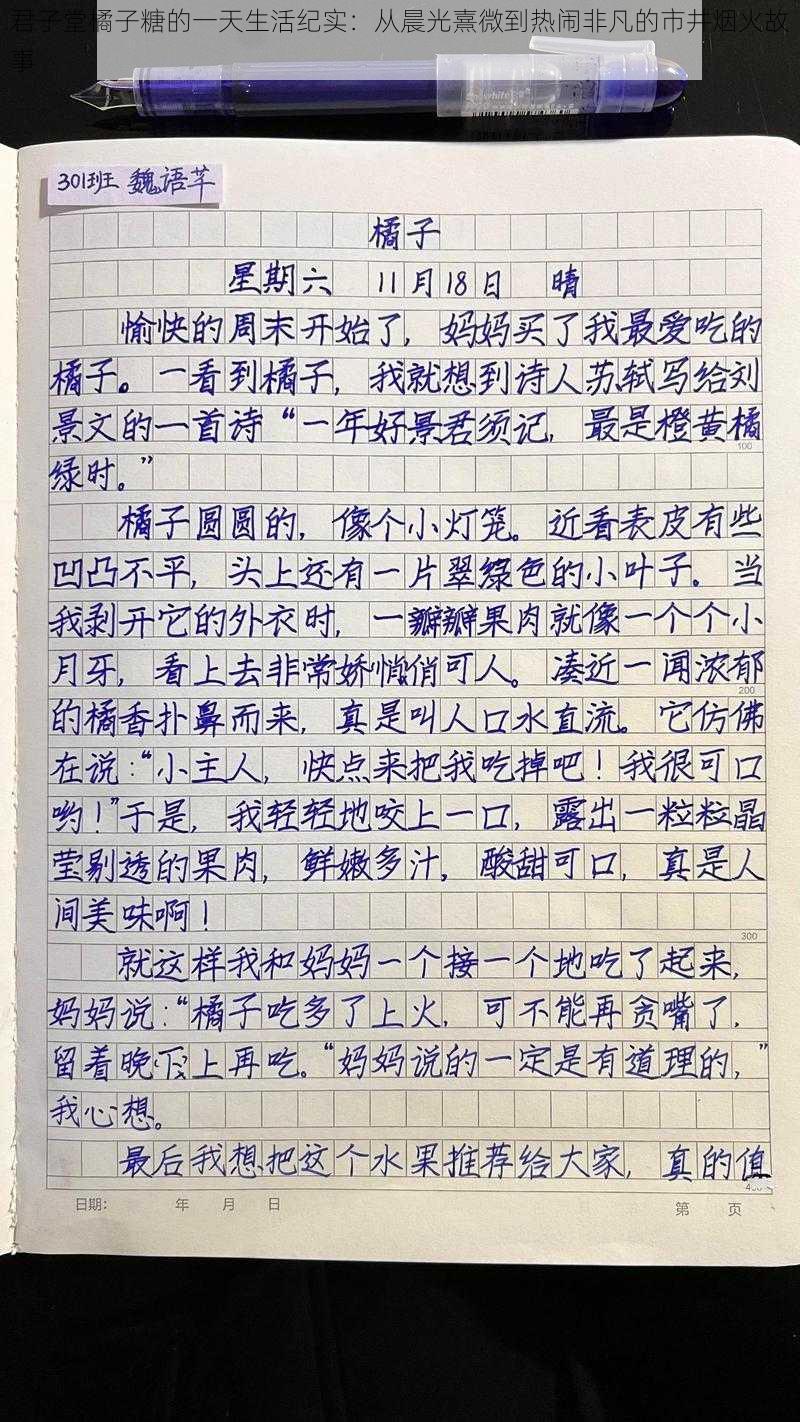 君子堂橘子糖的一天生活纪实：从晨光熹微到热闹非凡的市井烟火故
事
301班 魏语芊
橘子
星期六 11月18日 晴
愉快的周末开始了，妈妈买了我最爱吃的
橘子。一看到橘子，我就想到诗人苏轼写给刘
景文的一首诗“一年好景君须记，最是橙黄橘
100
绿时。”
橘子圆圆的，像个小灯笼。近看表皮有些
凹凸不平，头上还有一片翠绿色的小叶子。当
我剥开它的外衣时，一瓣瓣果肉就像一个个小
月牙，看上去非常娇悄俏可人。凑近一闻浓郁
200
的橘香扑鼻而来，真是叫人口水直流。它仿佛
在说：“小主人，快点来把我吃掉吧！我很可口
哟！”于是，我轻轻地咬上一口，露出一粒粒晶
莹剔透的果肉，鲜嫩多汁，酸甜可口，真是人
间美味啊！
300
就这样我和妈妈一个接一个地吃了起来，
妈妈说：“橘子吃多了上火，可不能再贪嘴了，
留着晚上再吃。“妈妈说的一定是有道理的，”
我心想。
最后我想把这个水果推荐给大家，真的值
日期： 年 月 日
第 页